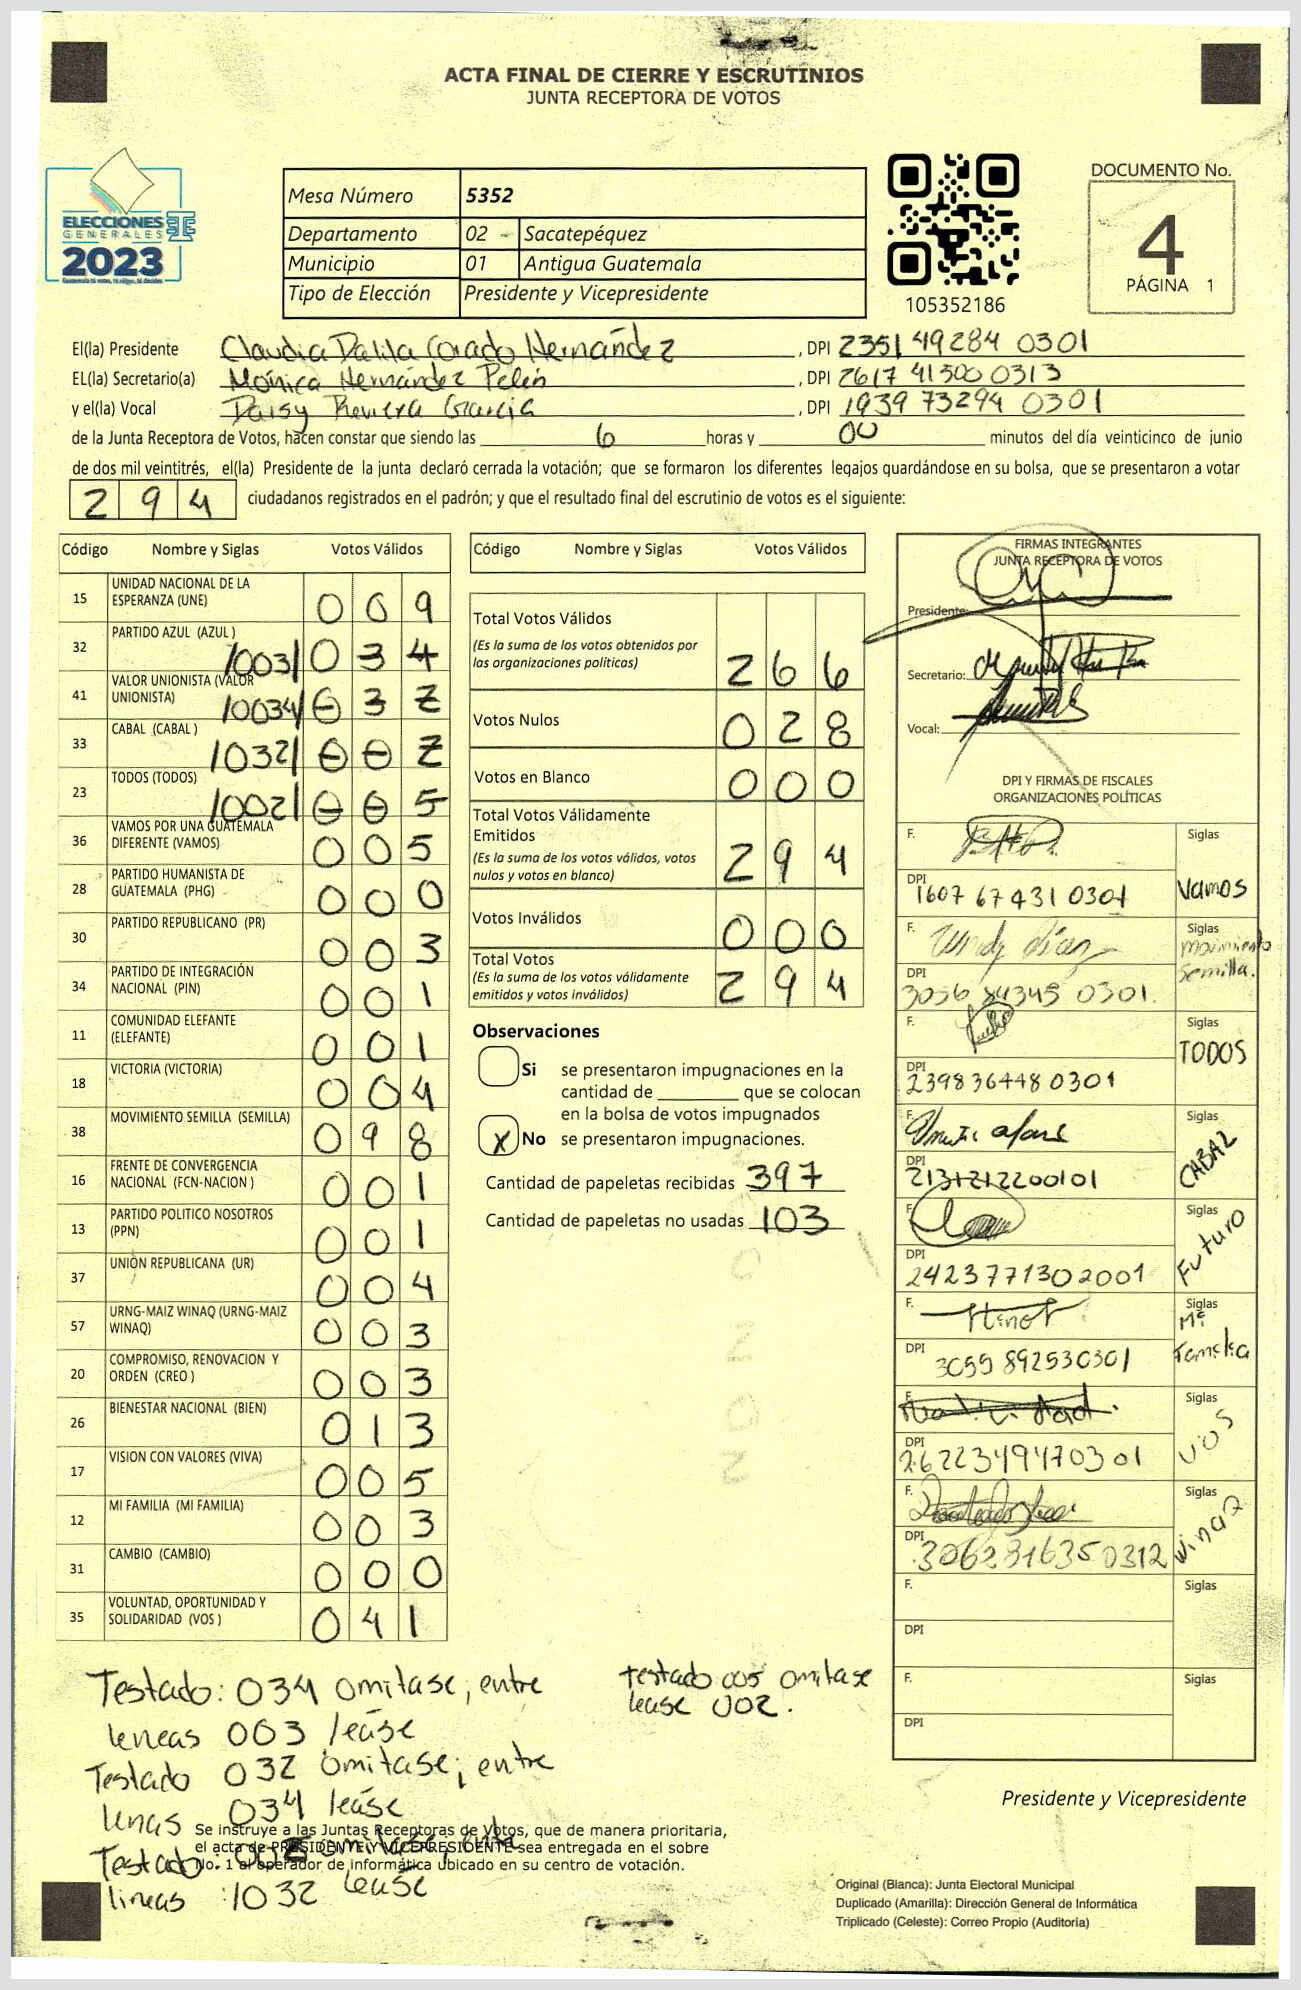 ACTA FINAL DE CIERRE Y ESCRUTINIOS
JUNTA RECEPTORA DE VOTOS
ELECCIONES
GENERALES
2023
Mesa Número 5352
Departamento 02 Sacatepéquez
Municipio 01 Antigua Guatemala
Tipo de Elección Presidente y Vicepresidente
105352186
DOCUMENTO No.
4
PÁGINA 1
El(la) Presidente Claudia Dalila Corado Hernández, DPI 2351 49284 0301
EL(la) Secretario(a) Mónica Hernández Pelén, DPI 2617 41500 0313
y el(la) Vocal Daisy Reviera Garcia, DPI 1939 73294 0301
de la Junta Receptora de Votos, hacen constar que siendo las 6 horas y 00 minutos del día veinticinco de junio
de dos mil veintitrés, el(la) Presidente de la junta declaró cerrada la votación; que se formaron los diferentes legajos guardándose en su bolsa, que se presentaron a votar
294 ciudadanos registrados en el padrón; y que el resultado final del escrutinio de votos es el siguiente:
Código Nombre y Siglas Votos Válidos
15 UNIDAD NACIONAL DE LA ESPERANZA (UNE) 009
32 PARTIDO AZUL (AZUL ) /003/ 034
41 VALOR UNIONISTA (VALOR UNIONISTA) /0034/ 032
33 CABAL (CABAL ) /032/ 002
23 TODOS (TODOS) /002/ 005
36 VAMOS POR UNA GUATEMALA DIFERENTE (VAMOS) 005
28 PARTIDO HUMANISTA DE GUATEMALA (PHG) 000
30 PARTIDO REPUBLICANO (PR) 003
34 PARTIDO DE INTEGRACIÓN NACIONAL (PIN) 001
11 COMUNIDAD ELEFANTE (ELEFANTE) 001
18 VICTORIA (VICTORIA) 004
38 MOVIMIENTO SEMILLA (SEMILLA) 098
16 FRENTE DE CONVERGENCIA NACIONAL (FCN-NACION ) 001
13 PARTIDO POLITICO NOSOTROS (PPN) 001
37 UNIÓN REPUBLICANA (UR) 004
57 URNG-MAIZ WINAQ (URNG-MAIZ WINAQ) 003
20 COMPROMISO, RENOVACION Y ORDEN (CREO ) 003
26 BIENESTAR NACIONAL (BIEN) 013
17 VISION CON VALORES (VIVA) 005
12 MI FAMILIA (MI FAMILIA) 003
31 CAMBIO (CAMBIO) 000
35 VOLUNTAD, OPORTUNIDAD Y SOLIDARIDAD (VOS ) 041
Código Nombre y Siglas Votos Válidos
Total Votos Válidos 266
(Es la suma de los votos obtenidos por
las organizaciones políticas)
Votos Nulos 028
Votos en Blanco 000
Total Votos Válidamente
Emitidos 294
(Es la suma de los votos válidos, votos
nulos y votos en blanco)
Votos Inválidos 000
Total Votos 294
(Es la suma de los votos válidamente
emitidos y votos inválidos)
Observaciones
Si se presentaron impugnaciones en la
cantidad de ________ que se colocan
en la bolsa de votos impugnados
X No se presentaron impugnaciones.
Cantidad de papeletas recibidas 397
Cantidad de papeletas no usadas 103
FIRMAS INTEGRANTES
JUNTA RECEPTORA DE VOTOS
Presidente:
Secretario:
Vocal:
DPI Y FIRMAS DE FISCALES
ORGANIZACIONES POLÍTICAS
F. Siglas
DPI 1607 67431 0301 Vamos
F. Siglas
DPI 3056 84345 0301. Movimiento Semilla.
F. Siglas
DPI 2398364480301 TODOS
F. Siglas
DPI 2131212200101 CABAL
F. Siglas
DPI 2423771302001 Futuro
F. Siglas
DPI 3055 892530301 Mi Familia
F. Siglas
DPI 2622349470301 VOS
F. Siglas
DPI 3062816350312 Winaq
F. Siglas
DPI
F. Siglas
DPI
Testado: 034 omitase, entre
leneas 003 leáse
Testado 032 omitase; entre
lenas 034 leáse
Testado. omitase, ente
lineas :1032 lease
testado 005 omitase
lease 002.
Se instruye a las Juntas Receptoras de Votos, que de manera prioritaria,
el acta de PRESIDENTE Y VICEPRESIDENTE sea entregada en el sobre
No. 1 al operador de informática ubicado en su centro de votación.
Presidente y Vicepresidente
Original (Blanca): Junta Electoral Municipal
Duplicado (Amarilla): Dirección General de Informática
Triplicado (Celeste): Correo Propio (Auditoría)